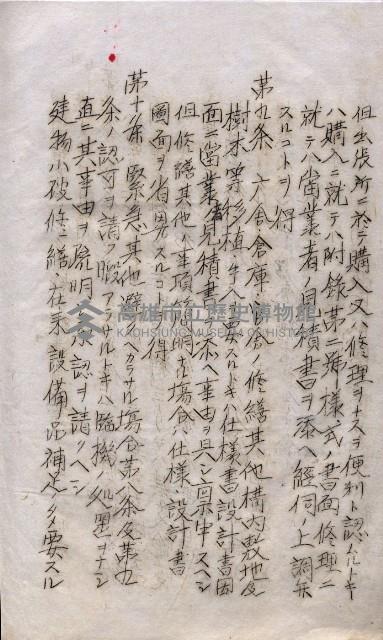 但出張所ニ於テ購入又ハ修理ヲナスヲ便利ト認ムルトキ
ハ購入ニ就テハ附錄第二號樣式ノ書面修理ニ
就テハ當業者ノ見積書ヲ添ヘ經伺ノ上調弁
スルコトヲ得
第九条 六舍倉庫 舍ノ修繕其他構內敷地及
樹木等移植 要スルトキハ仕樣書設計書圖
面ニ當業者見積書 添ヘ事由ヲ具シ稟申スヘシ
但修繕其他ノ事項簡明ナル場合ハ仕樣設計書
圖面ヲ省畧スルコトヲ得
第十条 緊急其他 場合第八条及第九
条ノ認可ヲ請フ暇ナキトキハ臨機ノ処置ヲナシ
直ニ其事由ヲ疏明シ 承認ヲ請フヘシ
建物小破修繕、在來設備品補足ヲ要スル
高雄市立歷史博物館
KAOHSIUNG MUSEUM OF HISTORY